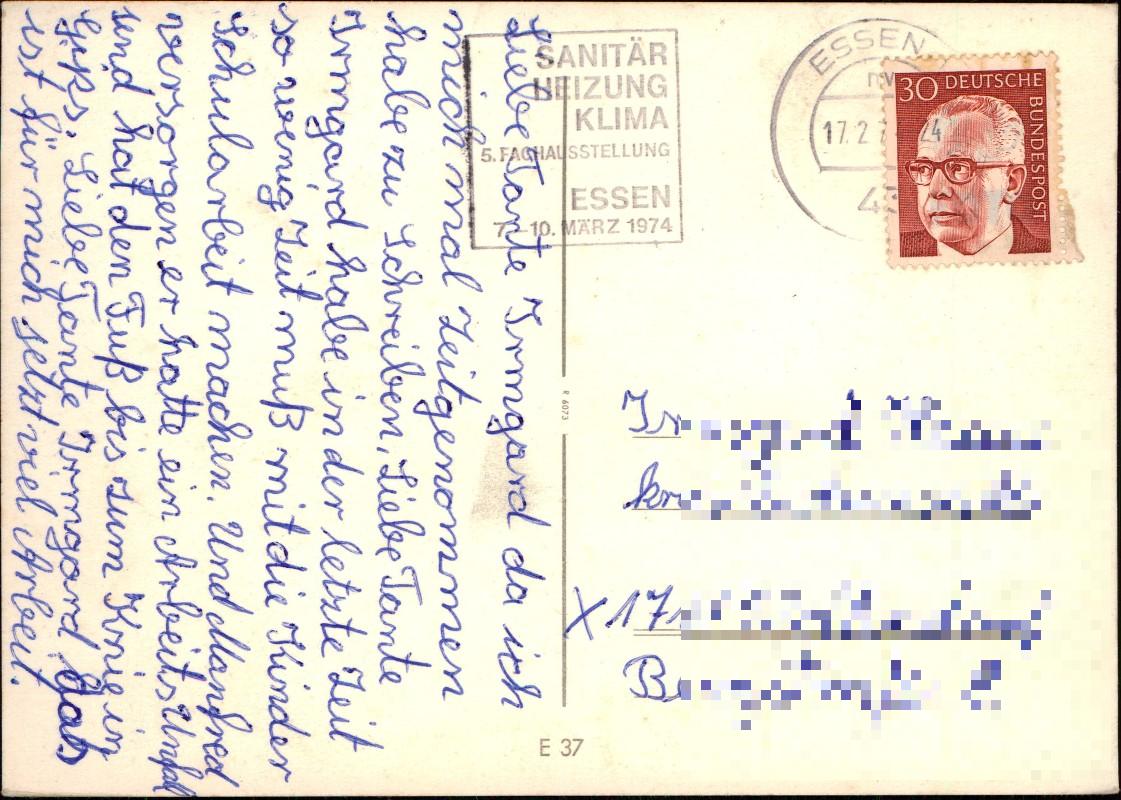 Liebe Tante Irmgard da ich
mich mal Zeitgenommen
habe zu Schreiben, Liebe Tante
Irmgard habe in der letzte Zeit
so wenig Zeit muß mit die Kinder
Schularbeit machen. Und Manfred
versorgen er hatte ein Arbeits Unfall
und hat den Fuß bis zum Knie in
Gips. Liebe Tante Irmgard das
ist für mich jetzt viel Arbeit.
SANITÄR
HEIZUNG
KLIMA
5. FACHAUSSTELLUNG
ESSEN
7.-10. MÄRZ 1974
ESSEN
17.2.74
43
30 DEUTSCHE
BUNDESPOST
R 6073
E 37